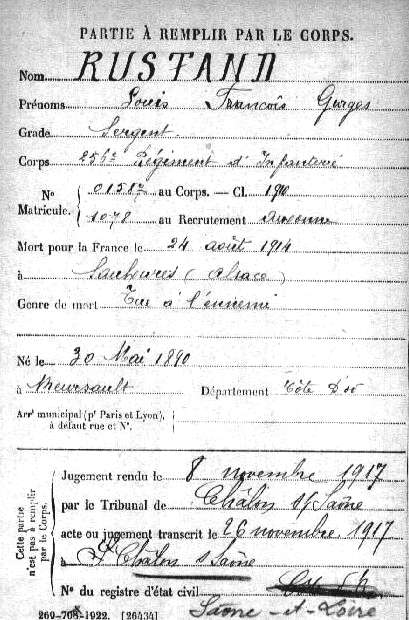 PARTIE À REMPLIR PAR LE CORPS.
Nom RUSTAND
Prénoms Louis François Georges
Grade Sergent
Corps 256e Régiment d'Infanterie
Nº Matricule. 01587 au Corps. — Cl. 1910
1078 au Recrutement Auxonne
Mort pour la France le 24 août 1914
à (Alsace)
Genre de mort Tué à l'ennemi
Né le 30 Mai 1890
à Meursault Département Côte D'or
Arrt municipal (pr Paris et Lyon), à défaut rue et Nº.
Cette partie n'est pas à remplir par le Corps.
Jugement rendu le 8 novembre 1917
par le Tribunal de Châlon s/ Saône
acte ou jugement transcrit le 26 novembre 1917
à Chalon s Saône
Nº du registre d'état civil
Saône-et-Loire
269-708-1922. [26434]